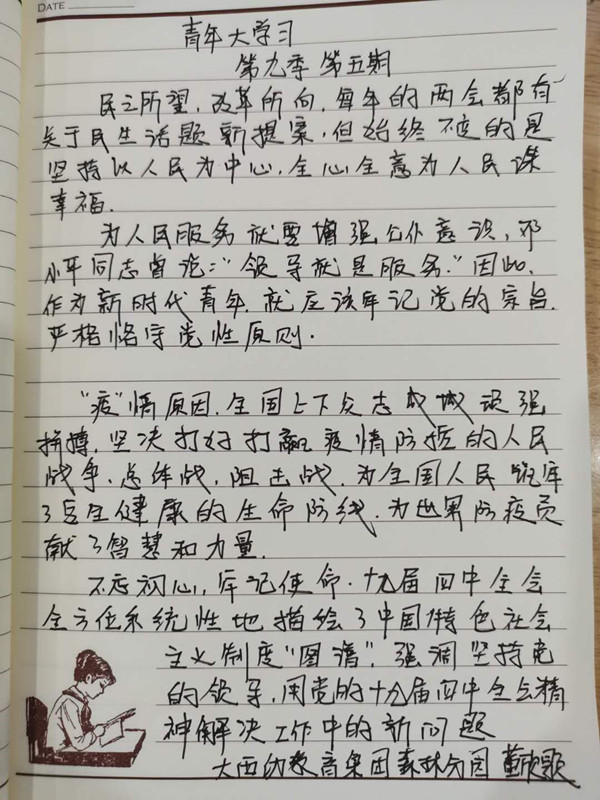 DATE
青年大学习
第九季 第五期
民之所望,改革所向,每年的两会都有
关于民生话题新提案,但始终不变的是
坚持以人民为中心,全心全意为人民谋
幸福.
为人民服务就要增强公仆意识,邓
小平同志曾说:"领导就是服务."因此,
作为新时代青年.就应该牢记党的宗旨.
严格恪守党性原则.
"疫"情原因,全国上下众志成城 顽强
拼搏,坚决打好打赢疫情防控的人民
战争,总体战,阻击战.为全国人民筑牢
了卫生健康的生命防线.为世界防疫贡
献了智慧和力量.
不忘初心,牢记使命.十九届四中全会
全方位系统性地描绘了中国特色社会
主义制度"图谱",强调坚持党
的领导,用党的十九届四中全会精
神解决工作中的新问题
大西幼教育集团森林分园